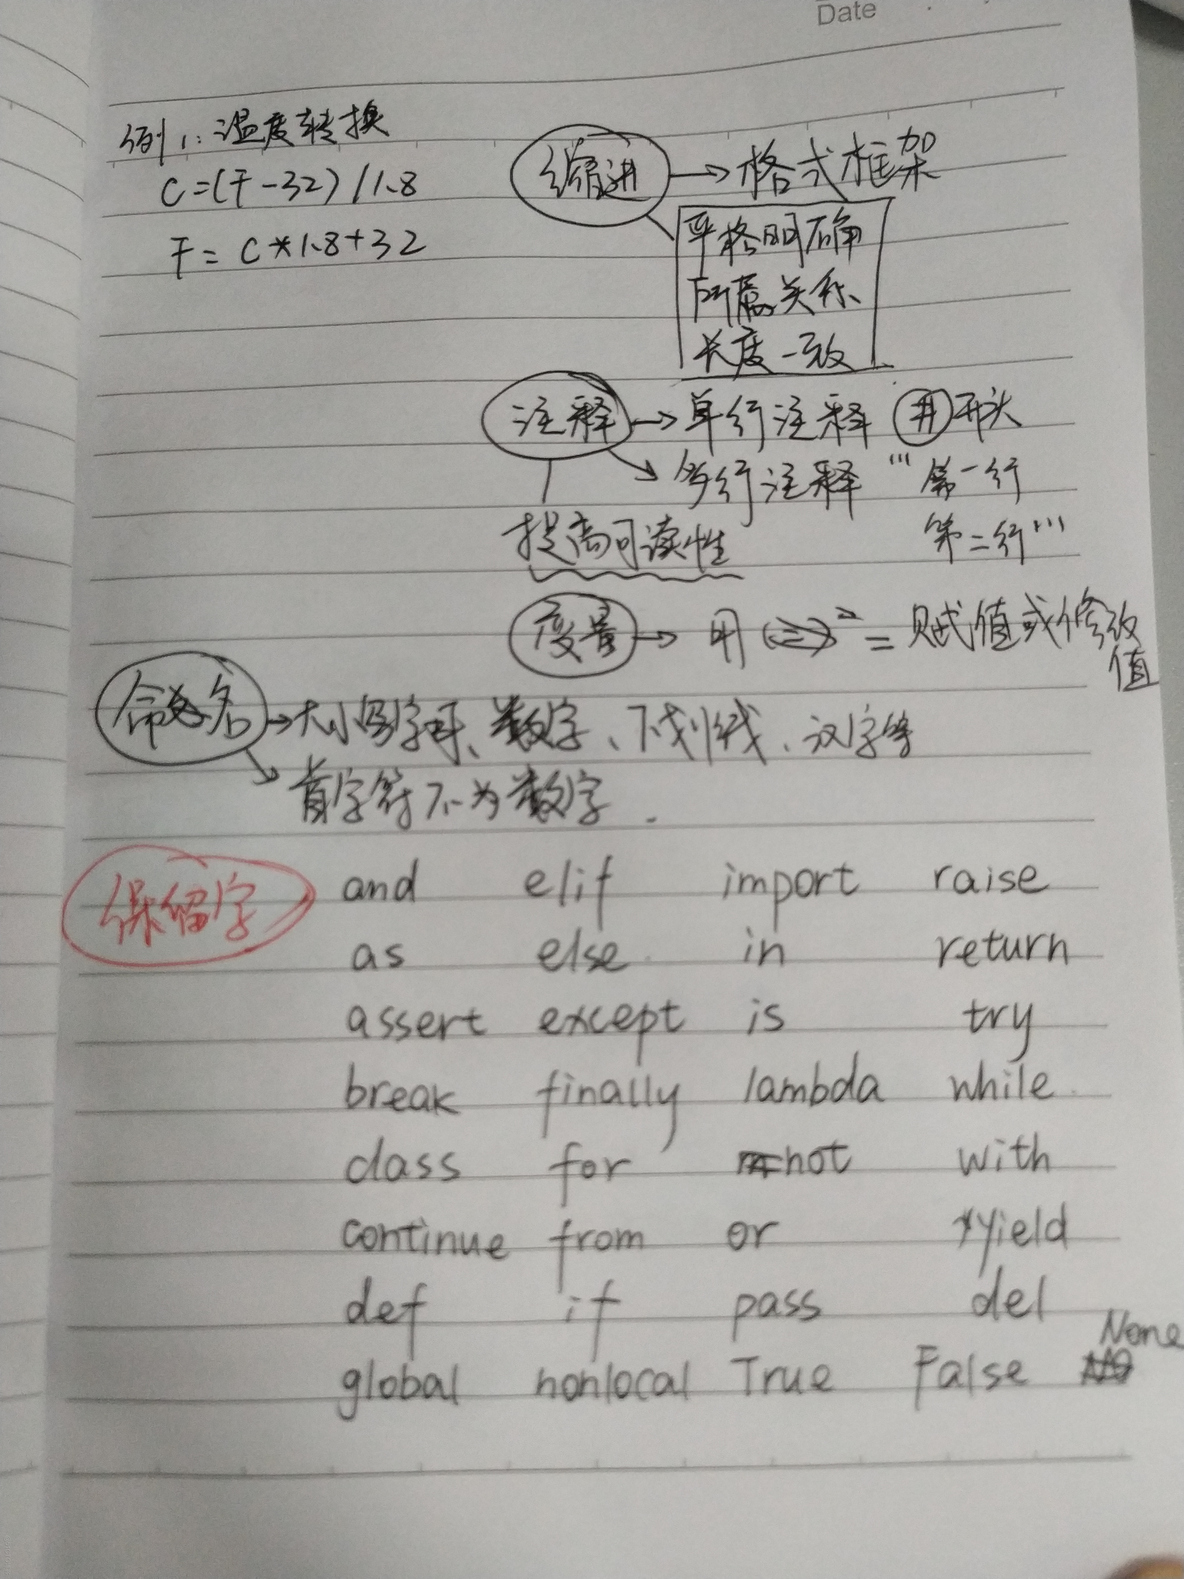 Date
例1:温度转换
C=(F-32)/1.8
F=C*1.8+32
缩进→格式框架
严格明确
所属关系
长度一致
注释→单行注释 #开头
多行注释 '''第一行
第二行'''
提高可读性
变量→用 = 赋值或修改
值
命名→大小写字母、数字、下划线、汉字等
首字符不为数字.
保留字
and elif import raise
as else in return
assert except is try
break finally lambda while
class for not with
continue from or yield
def if pass del
None
global nonlocal True False